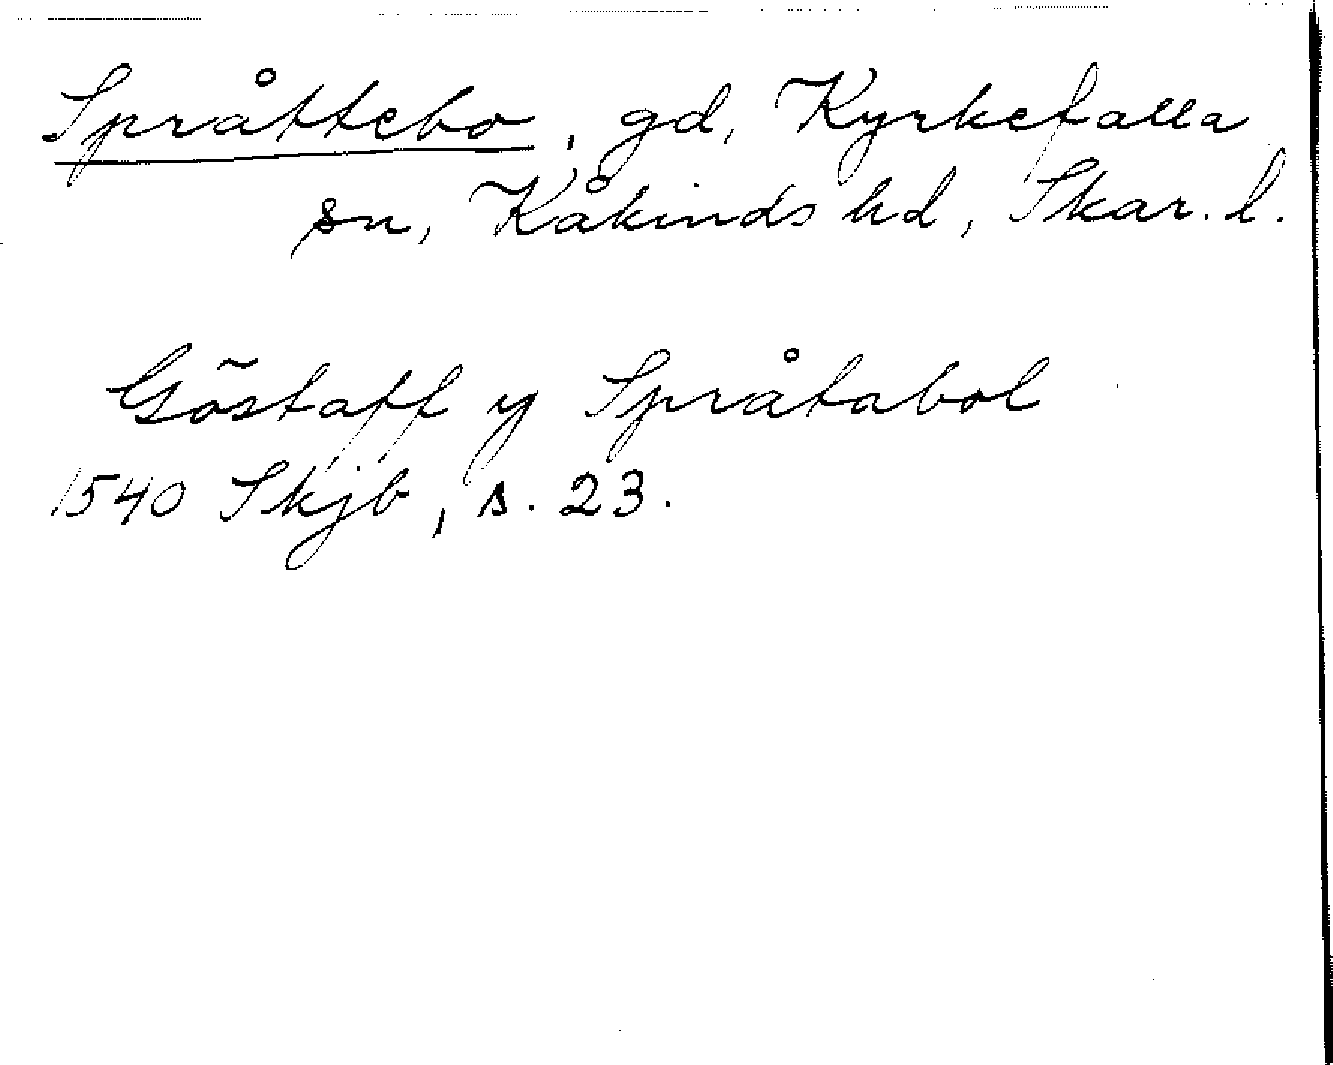 Språttebo, gd, Kyrkefalla
sn, Kåkinds hd, Skar. l.
Göstaff y Språtabol
1540 Skjb, s. 23.